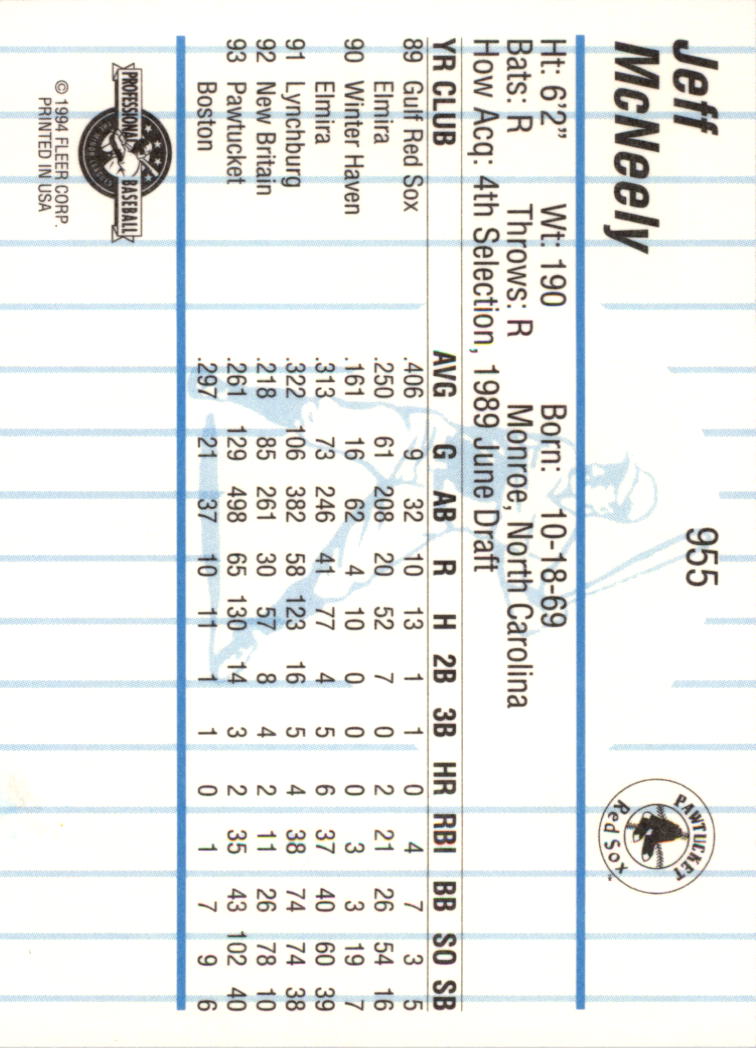 Jeff
McNeely
955
PAWTUCKET
Red Sox
™
Ht: 6'2" Wt: 190 Born: 10-18-69
Bats: R Throws: R Monroe, North Carolina
How Acq: 4th Selection, 1989 June Draft
YR CLUB AVG G AB R H 2B 3B HR RBI BB SO SB
89 Gulf Red Sox .406 9 32 10 13 1 1 0 4 7 3 5
Elmira .250 61 208 20 52 7 0 2 21 26 54 16
90 Winter Haven .161 16 62 4 10 0 0 0 3 3 19 7
Elmira .313 73 246 41 77 4 5 6 37 40 60 39
91 Lynchburg .322 106 382 58 123 16 5 4 38 74 74 38
92 New Britain .218 85 261 30 57 8 4 2 11 26 78 10
93 Pawtucket .261 129 498 65 130 14 3 2 35 43 102 40
Boston .297 21 37 10 11 1 1 0 1 7 9 6
PROFESSIONAL BASEBALL
© 1994 FLEER CORP.
PRINTED IN USA